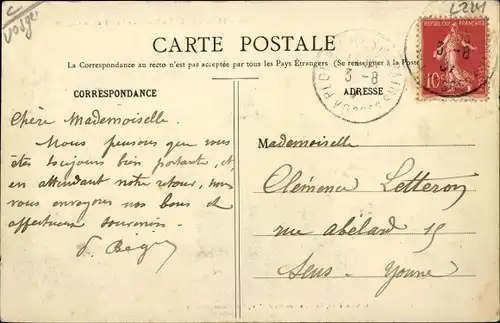 Vosges
CARTE POSTALE
La Correspondance au recto n'est pas acceptée par tous les Pays Étrangers (Se renseigner à la Poste
CORRESPONDANCE
ADRESSE
RÉPUBLIQUE FRANÇAISE
10c
3 -8
3 -8
PLOMBIÈRES
Chère Mademoiselle.
Nous pensons que vous
êtes toujours bien portante, et,
en attendant notre retour, nous
vous envoyons nos bons et
affectueux souvenirs.
Mademoiselle
Clémence Letteron
rue Abélard 15
Sens - Yonne